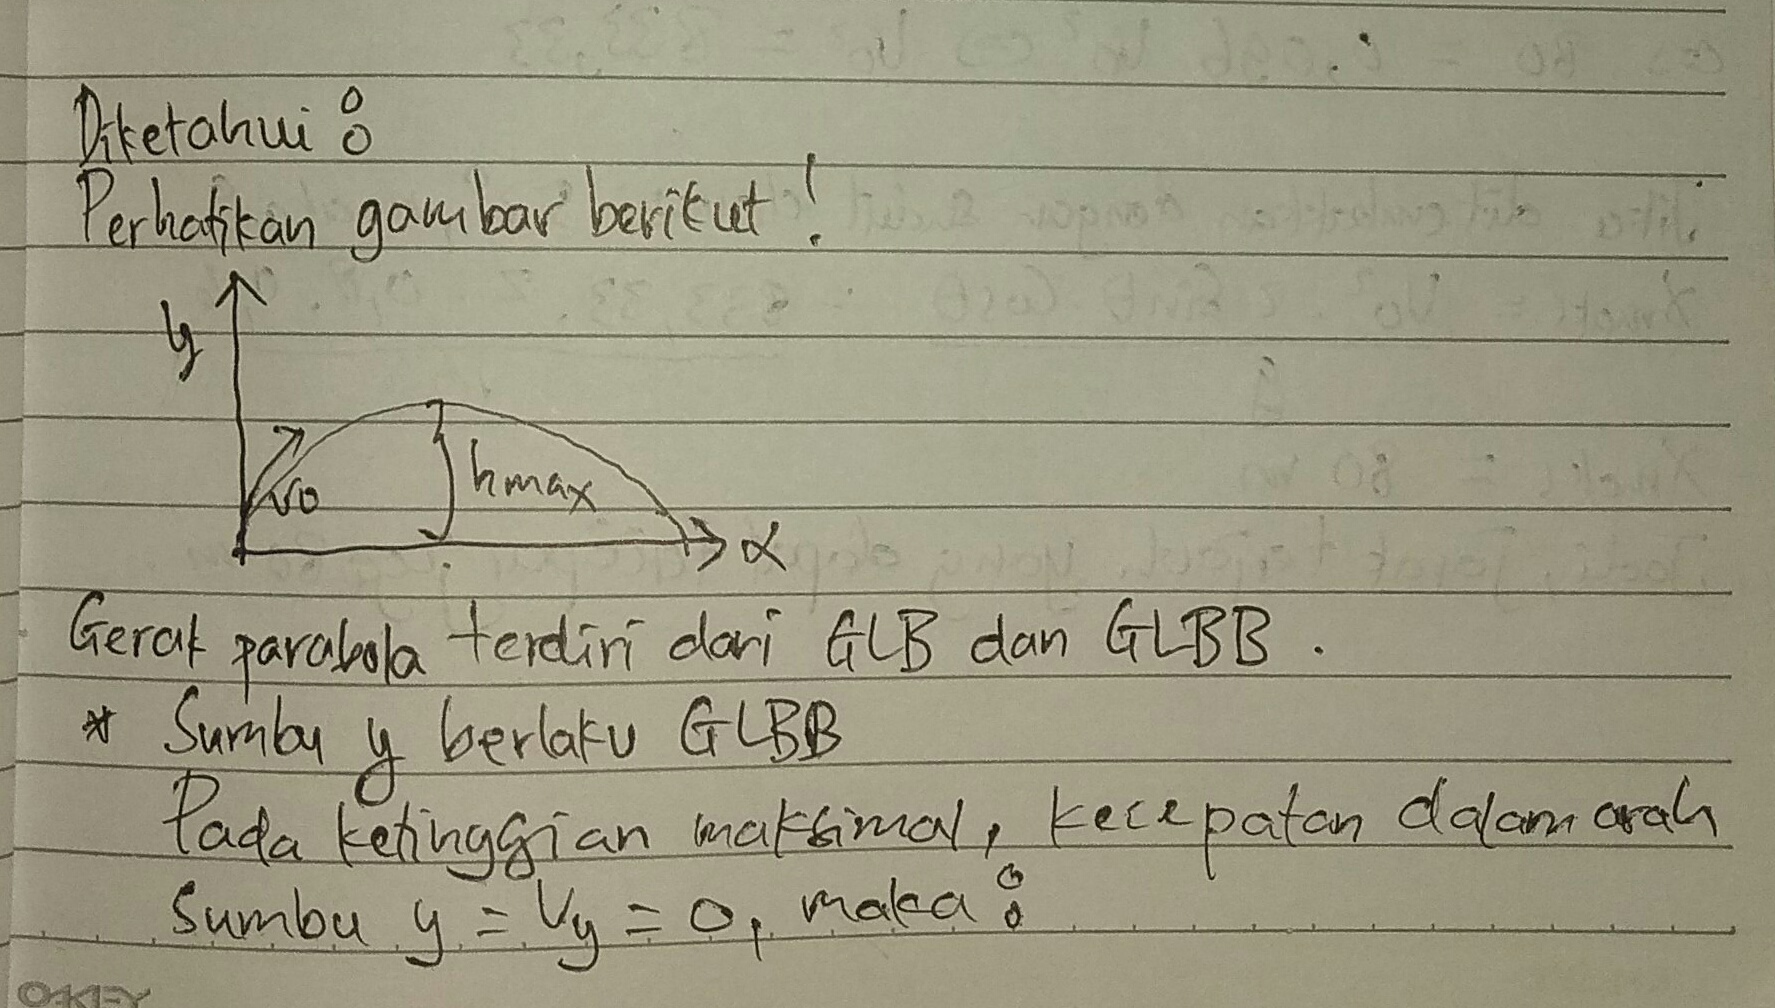 Diketahui :
Perhatikan gambar berikut !
y
vo
hmax
x
Gerak parabola terdiri dari GLB dan GLBB .
* Sumbu y berlaku GLBB
Pada ketinggian maksimal, kecepatan dalam arah
Sumbu y = Vy = 0, maka :
OAKLEY